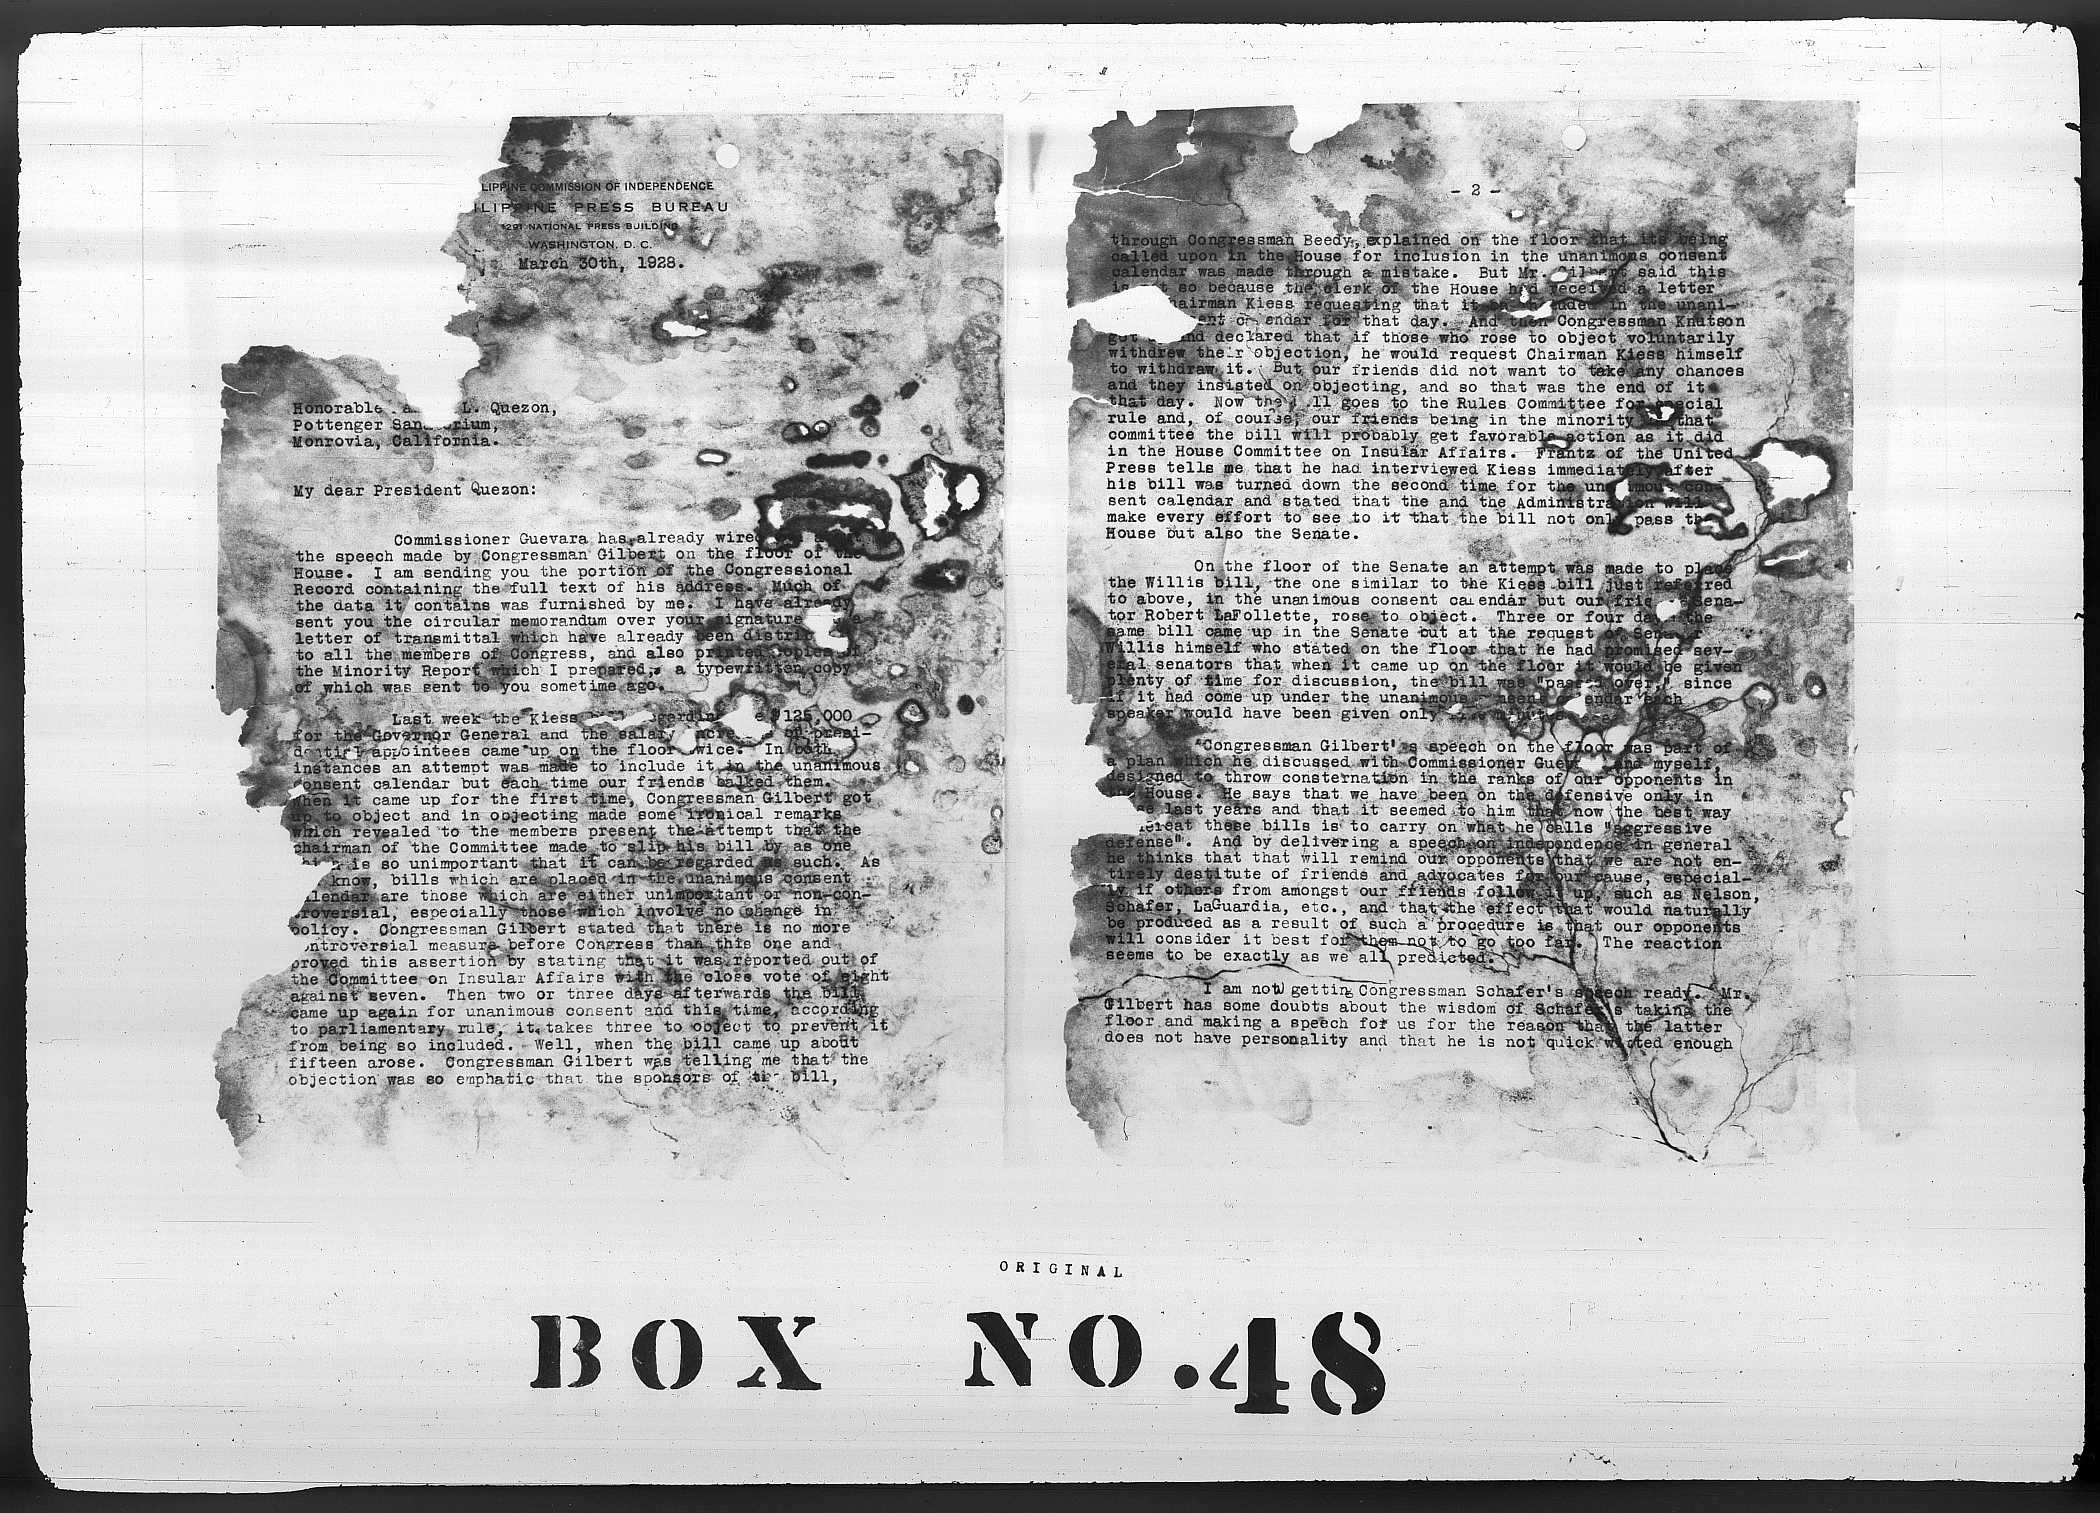 LIPPINE COMMISSION OF INDEPENDENCE
ILIPPINE PRESS BUREAU
1291 NATIONAL PRESS BUILDING
WASHINGTON, D. C.
March 30th, 1928.
Honorable L. Quezon,
Pottenger
Monrovia, California.
My dear President Quezon:
Commissioner Guevara has already wired
the speech made by Congressman Gilbert on the floor of the
House. I am sending you the portion of the Congressional
Record containing the full text of his address. Much of
the data it contains was furnished by me. I have already
sent you the circular memorandum over your signature
letter of transmittal which have already been
to all the members of Congress, and also printed copies of
the Minority Report which I prepared, a typewritten copy
of which was sent to you sometime ago.
Last week the Kiess $125,000
for the Governor General and the salary of presi-
dential appointees came up on the floor twice. In both
instances an attempt was made to include it in the unanimous
consent calendar but each time our friends balked them.
When it came up for the first time, Congressman Gilbert got
up to object and in objecting made some ironical remarks
which revealed to the members present the attempt that the
chairman of the Committee made to slip his bill by as one
is so unimportant that it can be regarded as such. As
know, bills which are placed in the unanimous consent
lendar are those which are either unimportant or non-con-
troversial, especially those which involve no change in
policy. Congressman Gilbert stated that there is no more
ontroversial measure before Congress than this one and
proved this assertion by stating that it was reported out of
the Committee on Insular Affairs with the close vote of eight
against seven. Then two or three days afterwards the bill
came up again for unanimous consent and this time, according
to parliamentary rule, it takes three to object to prevent it
from being so included. Well, when the bill came up about
fifteen arose. Congressman Gilbert was telling me that the
objection was so emphatic that the sponsors of the bill,
- 2 -
through Congressman Beedy, explained on the floor that its being
called upon in the House for inclusion in the unanimous consent
calendar was made through a mistake. But Mr. Gilbert said this
is not so because the clerk of the House had received a letter
hairman Kiess requesting that it in the unani-
for that day. And then Congressman Knutson
got and declared that if those who rose to object voluntarily
withdrew their objection, he would request Chairman Kiess himself
to withdraw it. But our friends did not want to take any chances
and they insisted on objecting, and so that was the end of it
that day. Now the goes to the Rules Committee for special
rule and, of course, our friends being in the minority that
committee the bill will probably get favorable action as it did
in the House Committee on Insular Affairs. Frantz of the United
Press tells me that he had interviewed Kiess immediately after
his bill was turned down the second time for the unanimous con-
sent calendar and stated that the and the Administration will
make every effort to see to it that the bill not only pass the
House but also the Senate.
On the floor of the Senate an attempt was made to place
the Willis bill, the one similar to the Kiess bill just referred
to above, in the unanimous consent calendar but our Sena-
tor Robert LaFollette, rose to object. Three or four the
same bill came up in the Senate but at the request of Senator
Willis himself who stated on the floor that he had promised sev-
eral senators that when it came up on the floor it would be given
plenty of time for discussion, the bill was "passed over," since
if it had come up under the unanimous each
speaker would have been given only
Congressman Gilbert's speech on the floor was part of
a plan which he discussed with Commissioner and myself,
designed to throw consternation in the ranks of our opponents in
the House. He says that we have been on the defensive only in
last years and that it seemed to him that now the best way
defeat these bills is to carry on what he calls "aggressive
defense". And by delivering a speech on independence in general
he thinks that that will remind our opponents that we are not en-
tirely destitute of friends and advocates for our cause, especial-
ly if others from amongst our friends follow it up, such as Nelson,
Schafer, LaGuardia, etc., and that the effect that would naturally
be produced as a result of such a procedure is that our opponents
will consider it best for them not to go too far. The reaction
seems to be exactly as we all predicted.
I am now getting Congressman Schafer's speech ready. Mr.
Gilbert has some doubts about the wisdom of Schafer's taking the
floor and making a speech for us for the reason that the latter
does not have personality and that he is not quick witted enough
ORIGINAL
BOX NO.48